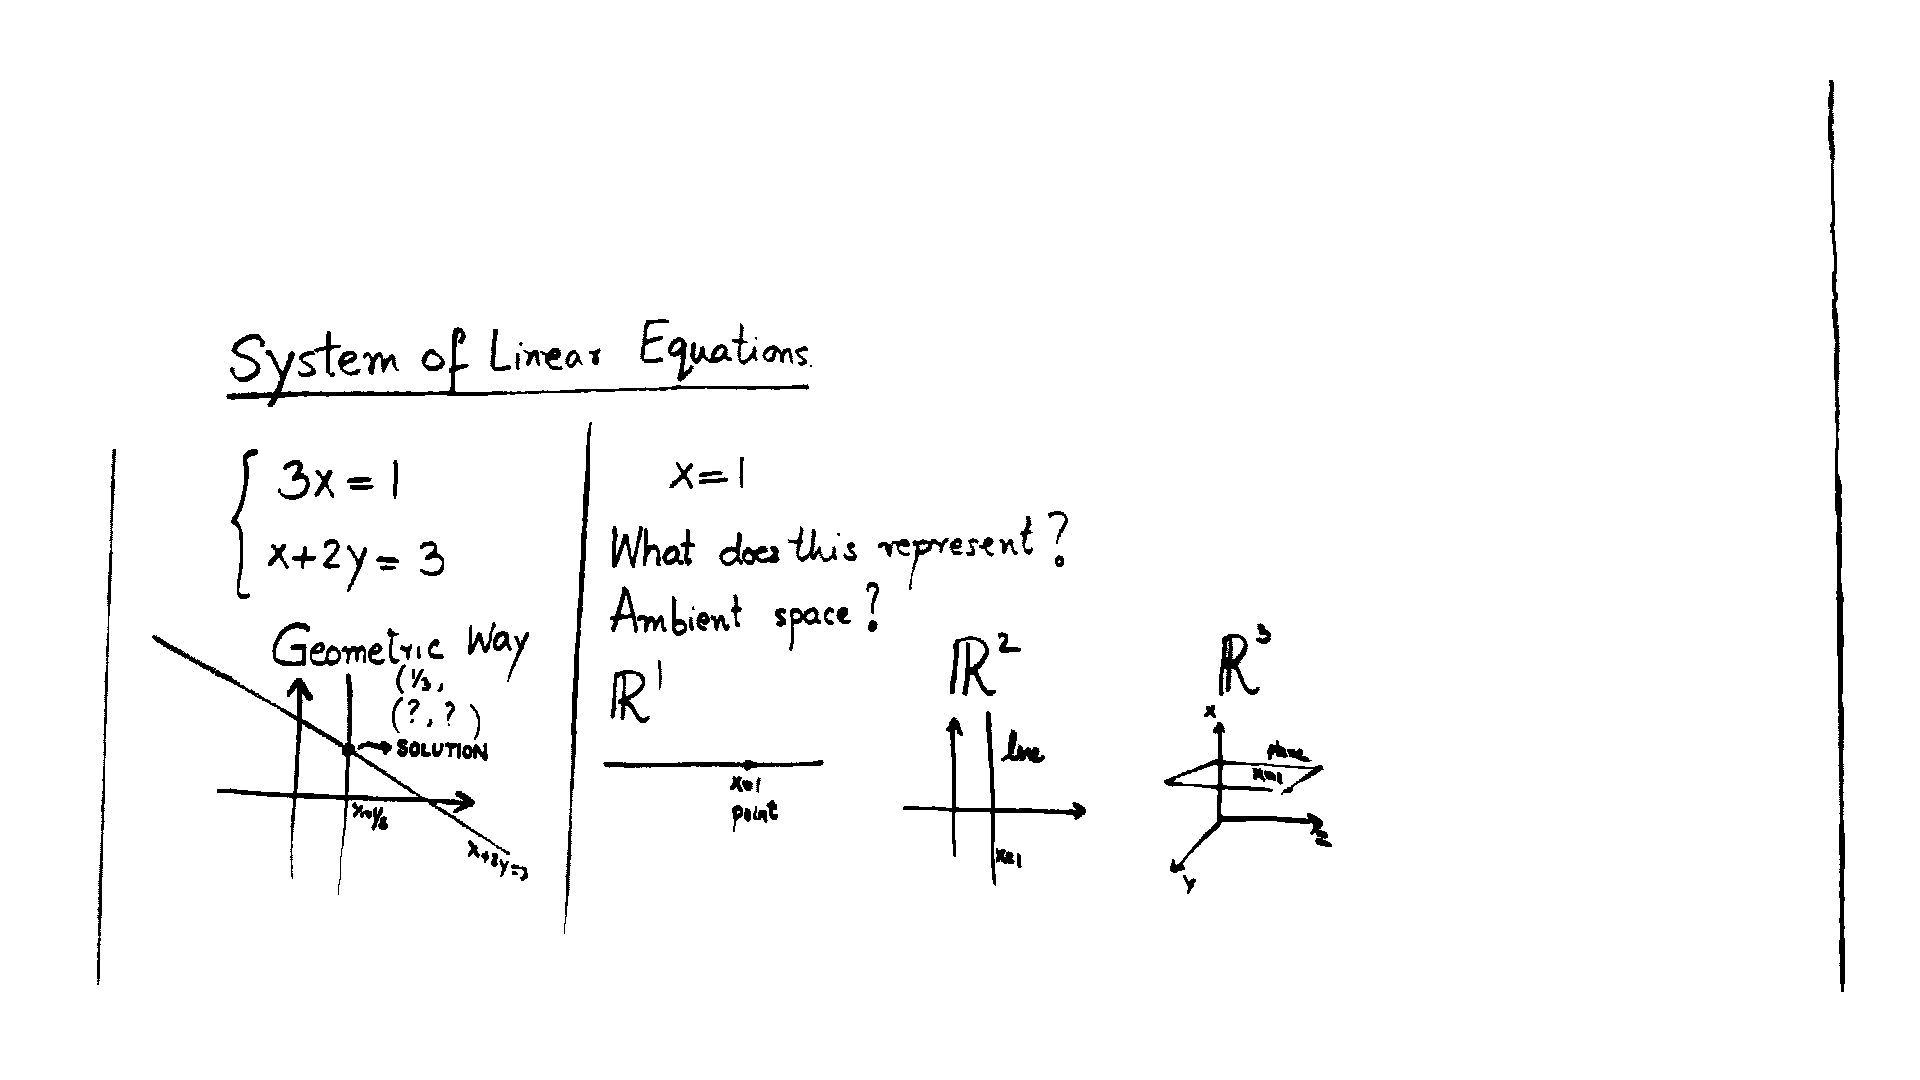 System of Linear Equations
3x = 1
x+2y = 3
Geometric Way
(1/3,
(?, ?)
SOLUTION
x+2y=3
x=1
What does this represent?
Ambient space?
ℝ¹
x=1
point
ℝ²
line
x=1
ℝ³
x
plane
x=1
y